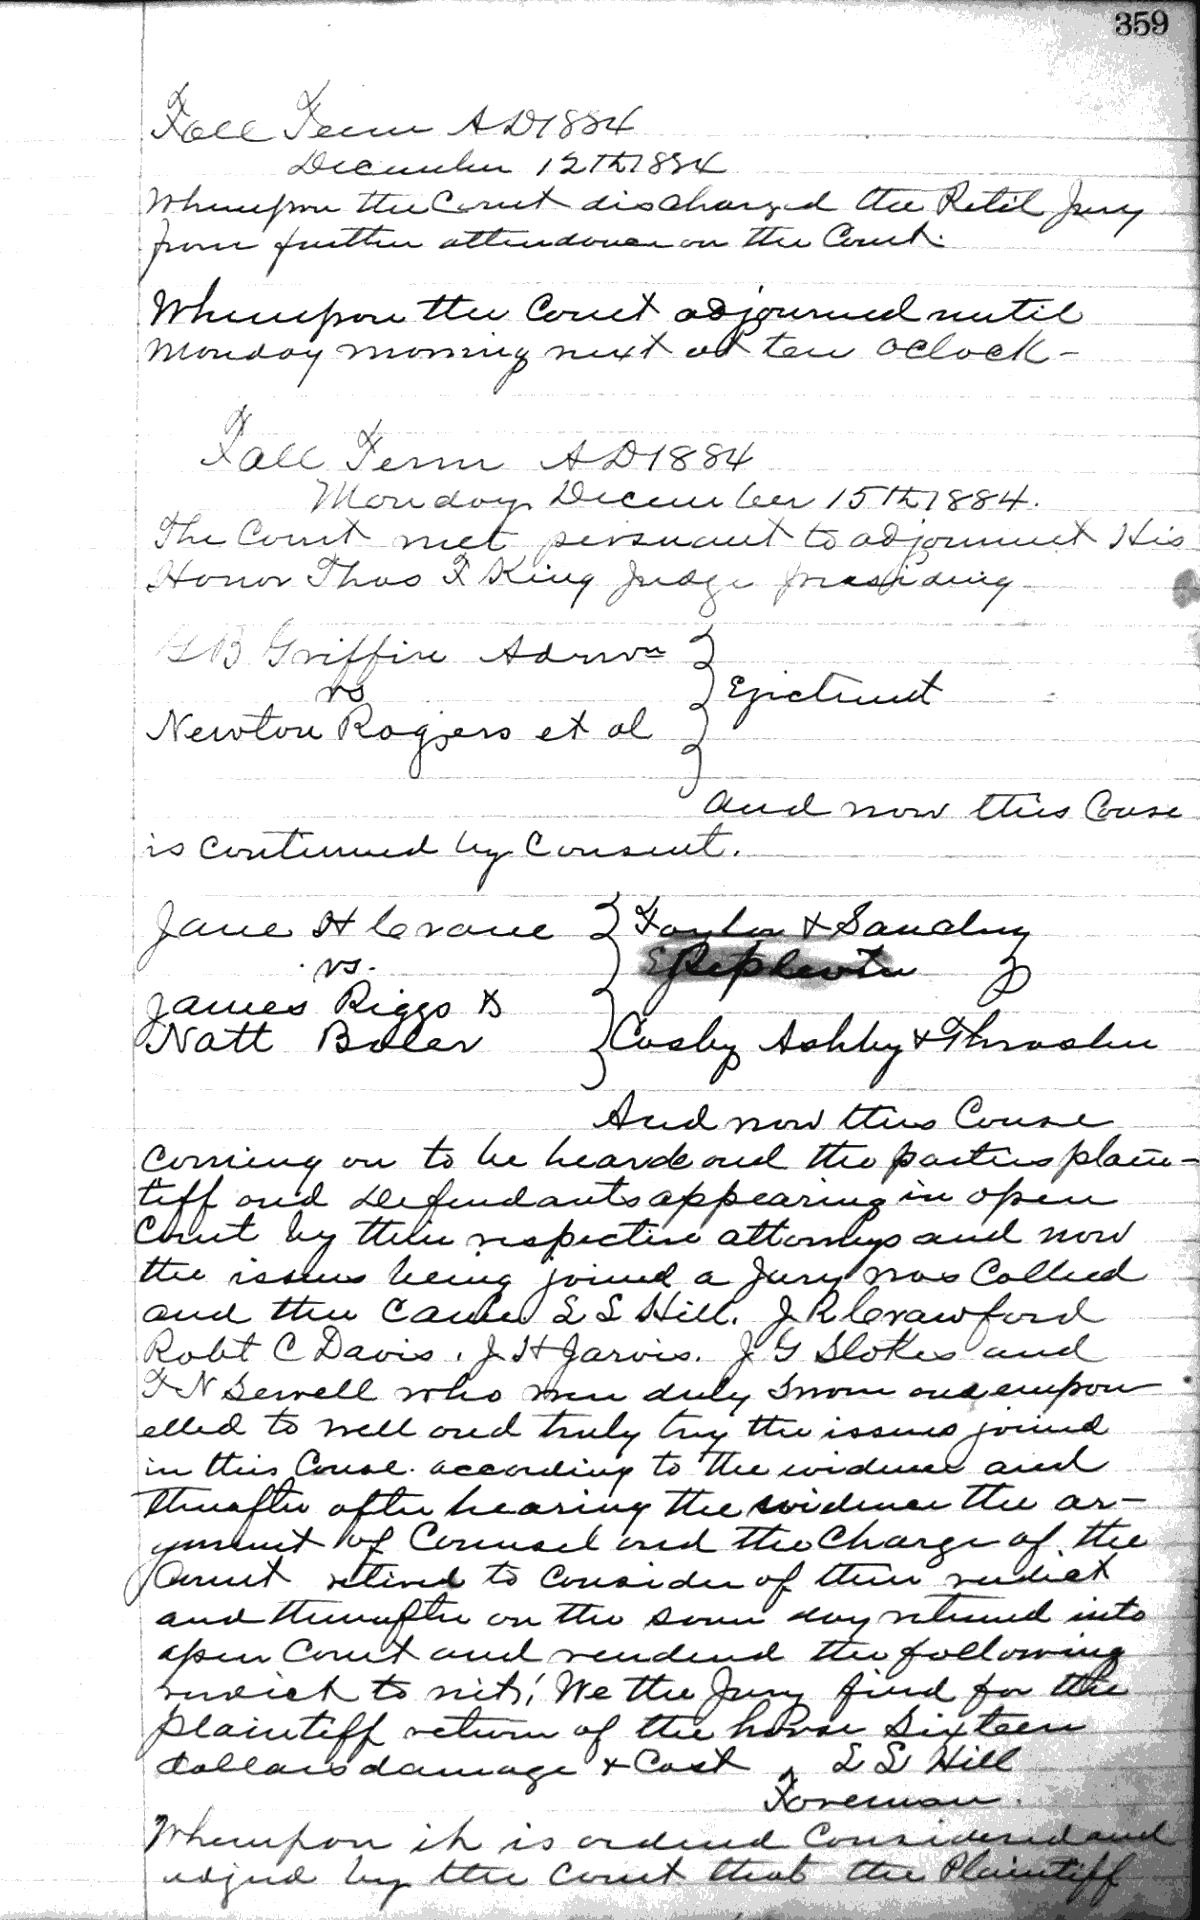 359
Fall Term AD 1884
December 12th 1884
Whereupon the Court discharged the Petit Jury
from further attendance on the Court.
Whereupon the Court adjourned until
Monday morning next at ten oclock -
Fall Term AD 1884
Monday December 15th 1884.
The Court met persuant to adjournment His
Honor Thos F King Judge presiding
G B Griffin Admr
vs
Newton Rogers et al
Ejectment
And now this Cause
is continued by Consent.
Jane H Crane
vs.
James Riggs &
Natt Boler
Taylor & Sanchez
Replevin
Cosby Ashby & Thrasher
And now this Cause
coming on to be heard and the parties plain-
tiff and Defendants appearing in open
Court by their respective attorneys and now
the issues being joined a Jury was Called
and then came L L Hill. J R Crawford
Robt C Davis. J H Jarvis. J G Slokes and
F N Sewell who were duly sworn and empan
elled to well and truly try the issues joined
in this Cause according to the evidence and
thereafter after hearing the evidence the ar-
gument of Counsel and the Charge of the
Court retired to consider of their verdict
and thereafter on the same day returned into
open Court and rendered the following
verdict to wit; We the Jury find for the
plaintiff return of the horse Sixteen
dollars damage & Cost L L Hill
Foreman.
Whereupon it is ordered considered and
adjud by the Court that the Plaintiff